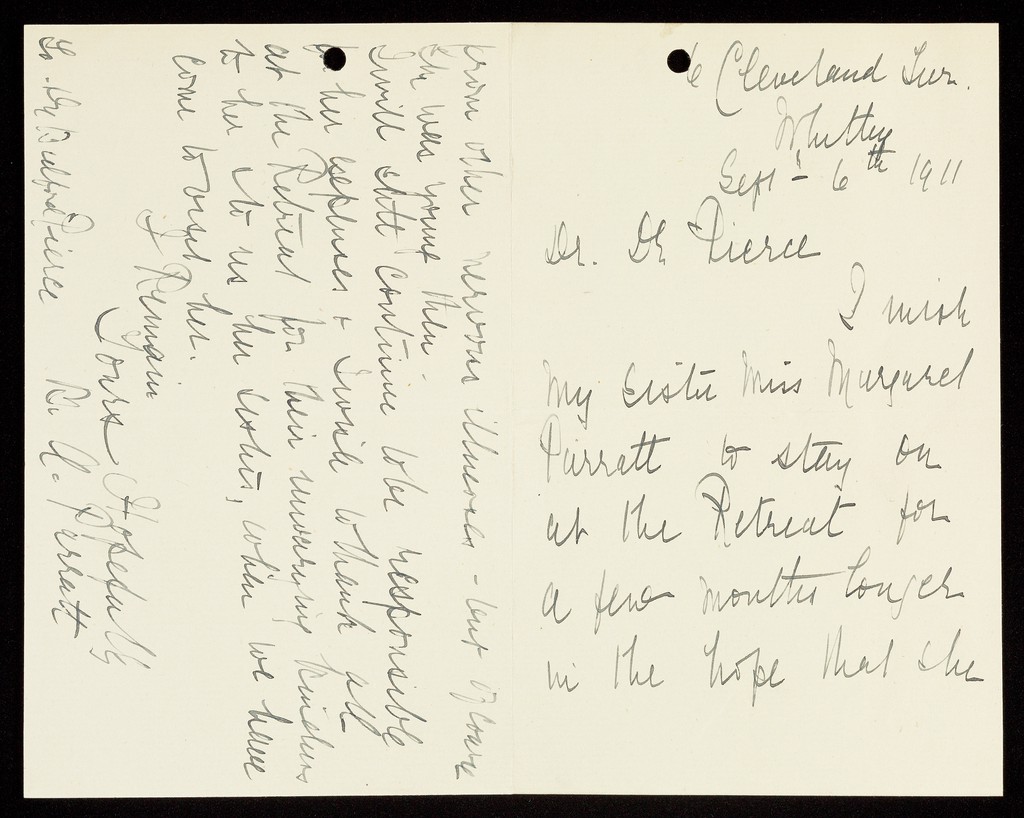 6 Cleveland Terr.
Whitby
Sept - 6th 1911
Dr. Dr. Pierce
I wish
my sister Miss Margaret
Parratt to stay on
at the Retreat for
a few months longer
in the hope that she
from other nervous illnesses - but of course
she was young then -
I will still continue to be responsible
for her expenses & I wish to thank all
at the Retreat for their unvarying kindness
to her & to us her sisters, when we have
come to visit her.
I Remain
Yours Hopefully
To. Dr. Bedford Pierce B. A. Parratt